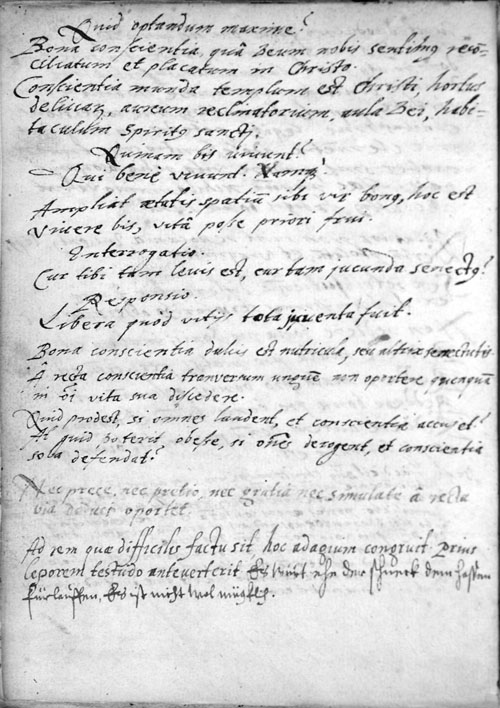 Quid optandum maxime?
Bona conscientia, quâ Deum nobis sentimus reco-
ciliatum et placatum in Christo.
Conscientia munda templum est Christi, hortus
deliciar, aureum reclinatorium, aula Dei, habi-
taculum Spiritus sancti.
Quinam bis vivunt?
Qui benè vivunt. Namq;
Ampliat aetatis spatiū sibi vir bonus, hoc est
vivere bis, vitâ posse priori frui.
Interrogatio.
Cur tibi tam levis est, cur tam jucunda senectus?
Responsio.
Libera quòd vitijs tota juventa fuit.
Bona conscientia dulcis est nutricula, seu altrix senectutis.
A recta conscientia tranversum unguē non oportere quenquā
in oī vita sua discedere.
Quid prodest, si omnes laudent, et conscientia accuset?
At quid poterit obesse, si oēs derogent, et conscientia
sola defendat?
Nec prece, nec pretio, nec gratia nec simulate à recta
via deduci oportet.
Ad rem quae difficilis factu sit, hoc adagium congruit Prius
leporem testudo anteverterit. Es wirt ehe der schneck dem hassen
fürlauffen, Es ist nicht wol müglich.